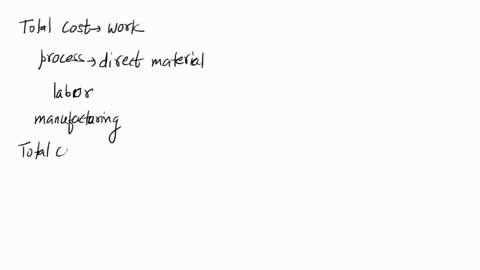 Total cost → work
process → direct material
labor
manufacturing
Total c